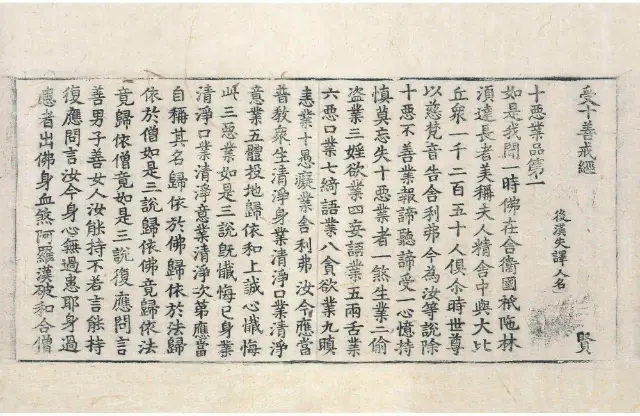 受十善戒經
後漢失譯人名
賢
十惡業品第一
如是我聞一時佛在舍衛國祇陁林
湏達長者美稱夫人精舍中與大比
丘衆一千二百五十人俱尒時世尊
以慈梵音告舍利弗今為汝等說除
十惡不善業報諦聽諦受一心憶持
慎莫忘失十惡業者一煞生業二偷
盜業三婬欲業四妄語業五兩舌業
六惡口業七綺語業八貪欲業九瞋
恚業十愚癡業舍利弗汝今應當
普教衆生清淨身業清淨口業清淨
意業五體投地歸依和上誠心懺悔
此三惡業如是三說旣懺悔已身業
清淨口業清淨意業清淨次第應當
自稱其名歸依於佛歸依於法歸
依於僧如是三說歸依佛竟歸依法
竟歸依僧竟如是三說復應問言
善男子善女人汝能持不若言能持
復應問言汝今身心無過患耶身過
患者出佛身血煞阿羅漢破和合僧